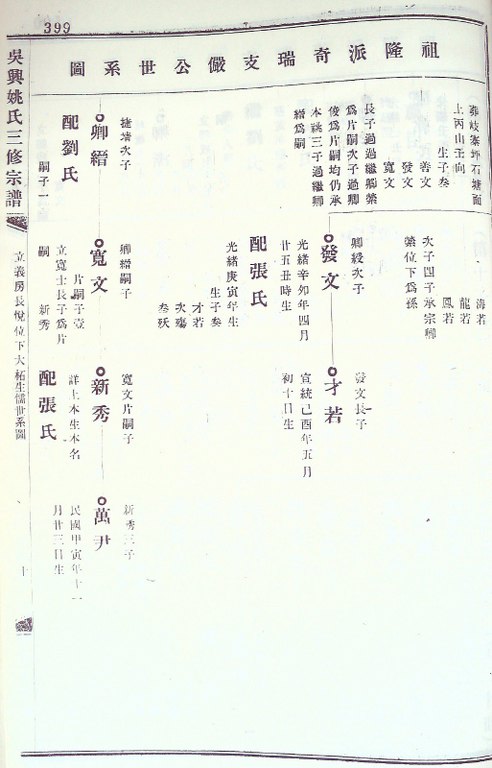 399
祖隆派奇瑞支儼公世系圖
上丙山壬向
生子叁
善文
發文
寬文
長子過過繼卿縈
爲片嗣次子過卿
俊爲片嗣均仍承
本祧三子過繼卿
縉爲嗣
捷墙次子
卿縉
配劉氏
嗣子一
海若
龍若
鳳若
次子四子承宗卿
縈位下爲孫
卿綬次子
發文
光緒辛卯年四月
廿五丑時生
配張氏
光緒庚寅年生
生子叁
才若
次
叁妖
卿縉嗣子
寬文
片嗣子壹
立寬士長子爲片
嗣
新秀
發文長子
才若
宣統己酉年五月
初十日生
寬文片嗣子
新秀
詳上本生本名
配張氏
新秀三子
萬尹
民國甲寅年十一
月廿三日生
吳興姚氏三修宗譜
立義房長悅位下大柘生儒世系圖
十